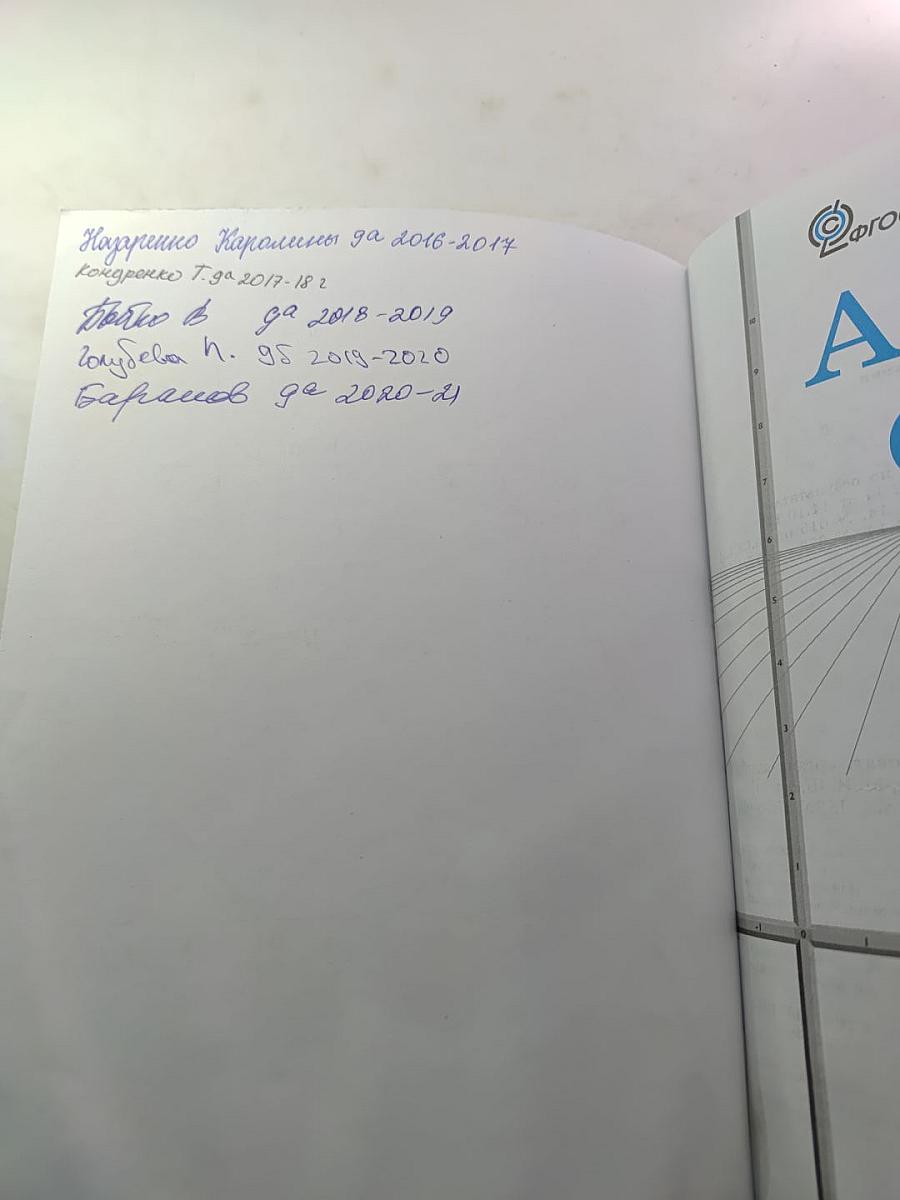 Назаренко Каролины 9а 2016-2017
Кондренко Т. 9а 2017-18 г
Бойко В 9а 2018-2019
Голубева П. 9б 2019-2020
Баранов 9а 2020-21
ФГОС
А
10
9
8
7
6
5
4
3
2
1
-1 0 1